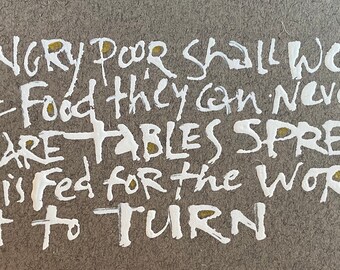 NGRY POOR Shall WO
FOOD they can Neve
ARE TABLES SPRE
is FeD for the WOR
t to TURN